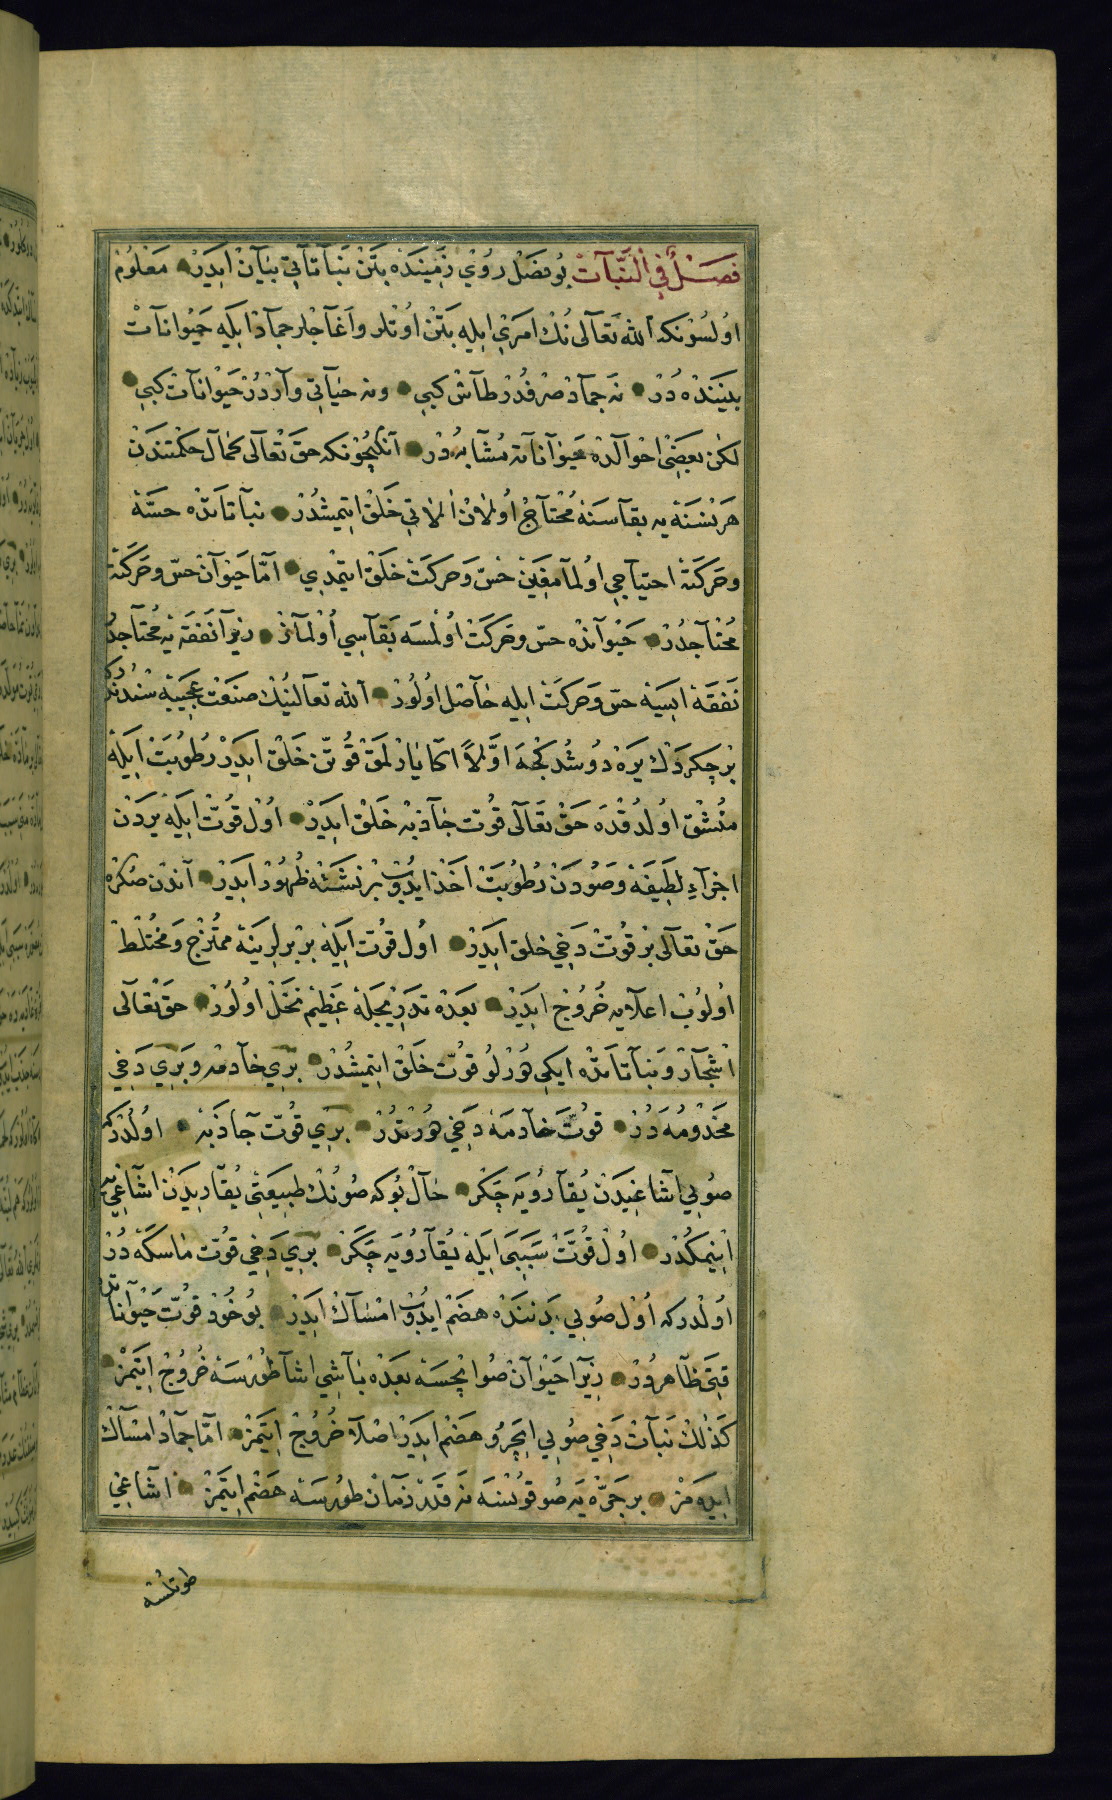 فَصْلٌ فِي النَّبَاتْ بُو فَصْلْ رُويِ زَمِينْدَه بِتَنْ نَبَاتَاتِي بَيَانْ ايدَرْ مَعْلُومْ
اولْسُونكه اللّٰه تَعَالى نُكْ امْرِي ايله بِتَنْ اوُتْلر واَغَاجْلر جمآدْ ايله حَيْوانَاتْ
بَيْنِنْدَه دُرْ نَه جمآدْ صرفْدُرْ طآشْ كبي ونه حَيَاتِي وآرْدُرْ حَيْوانَاتْ كبي
لكن بَعْضِي احْوَالدَه حَيْوانَاتَه مُشَابِهْدُرْ آنكيچُونكه حقّ تَعَالى كمَالِ حِكْمتنْدَنْ
هَرْ نَسْنَه يه بقآسنَه مُحْتَاجْ اُولانْ الاتِي خَلْقْ ايتمشْدُرْ نَبَاتَاتدَه حسَّه
وحَرَكتَه احتيَاجي اولمآمغِين حِسّ وَحركتْ خَلْقْ ايتمدي امّا حَيْوانْ حسّ وحَركَته
مُحْتَاجدُرْ حَيْوانْدَه حسّ وحَرَكَتْ اُولْمسَه بَقَاسِي اُولْمآزْ زيرَا نَفَقَه يَه مُحْتَاجدُرْ
نَفَقَه ايسَه حسّ وَحَركتْ ايله حَاصلْ اولُورْ اللّٰه تعالينُكْ صنعتْ عجيبَه سْنْدَندُركه
بَرْ چكرْدَك يَرَه دُوشْدُكْجَه اوّلاً آكَا يَارْلمَقْ قُوّتِنْ خَلْق ايدَرْ رُطُوبَتْ ايله
مُنْشقّ اولدُقْدَه حَقّ تَعَالى قُوّتِ جَاذبَه خَلْقْ ايدَرْ اولْ قُوّتْ ايله يَردَنْ
اجزآءِ لَطِيفَه وصُودَنْ رُطُوبَتْ اخَذْ ايدُوبْ بَرْ نَشْئَه ظُهُورْ ايدَرْ آندن صُكْره
حَقْ تعَالى بَرْ قُوّتْ دَخِي خلق ايدَرْ اولْ قُوّتْ ايله بر برلرينَه ممْتَزجْ وَمُخْتَلطْ
اولوبْ اعلايه خُرُوجْ ايدَرْ بعْدَه تدريجلَه عَظِيم نَخْل اولُورْ حقّ تَعَالى
اشْجَارْ وَنَبَاتَاتدَه ايكي دُرْلُو قُوّتْ خَلْقْ ايتمشْدُرْ بري خآدمَه وَبَرِي دَخِي
مَخْدُومَه دُرْ قُوّتِ خَآدمَه دَخِي دُرْتْدُرْ بري قُوّتِ جآذبَه اولْدركه
صُويِي اَشَاغِيدَنْ يُقَارُويَه چَكَرْ حَالْ بُوكه صُونُكْ طَبِيعَتِي يُقَارِيدَنْ اَشَاغِييَه
اينمكْدُر اولْ قُوّتْ سَبَبِي ايله يُقَارُويَه چَكَرْ بري دَخِي قُوّتِ مَاسكَه دُرْ
اولْدركه اُولْ صُويِي بَدننْدَه هضم ايدُوبْ امْسَاكْ ايدَرْ بُو خُودْ قُوّتْ حَيْوانَاتده
قتِي ظَاهرْدُرْ زيرَا حَيْوانْ صُو ايچسَه بعدَه بَاشِي اَشَاغَا طُورسَه خُرُوجْ ايتمَزْ
كَذٰلكْ نَبَاتْ دَخِي صُويِي ايچَرُو هضم ايدَرْ اصْلا خُرُوجْ ايتمَزْ امّا جمَادْ امْسَاكْ
ايده مَزْ بر جَرَّه يَه صُو قُونْسَه نَه قَدَرْ زمَانْ طُورسَه هَضْم ايتمَزْ اَشَاغِي
طوتلسه